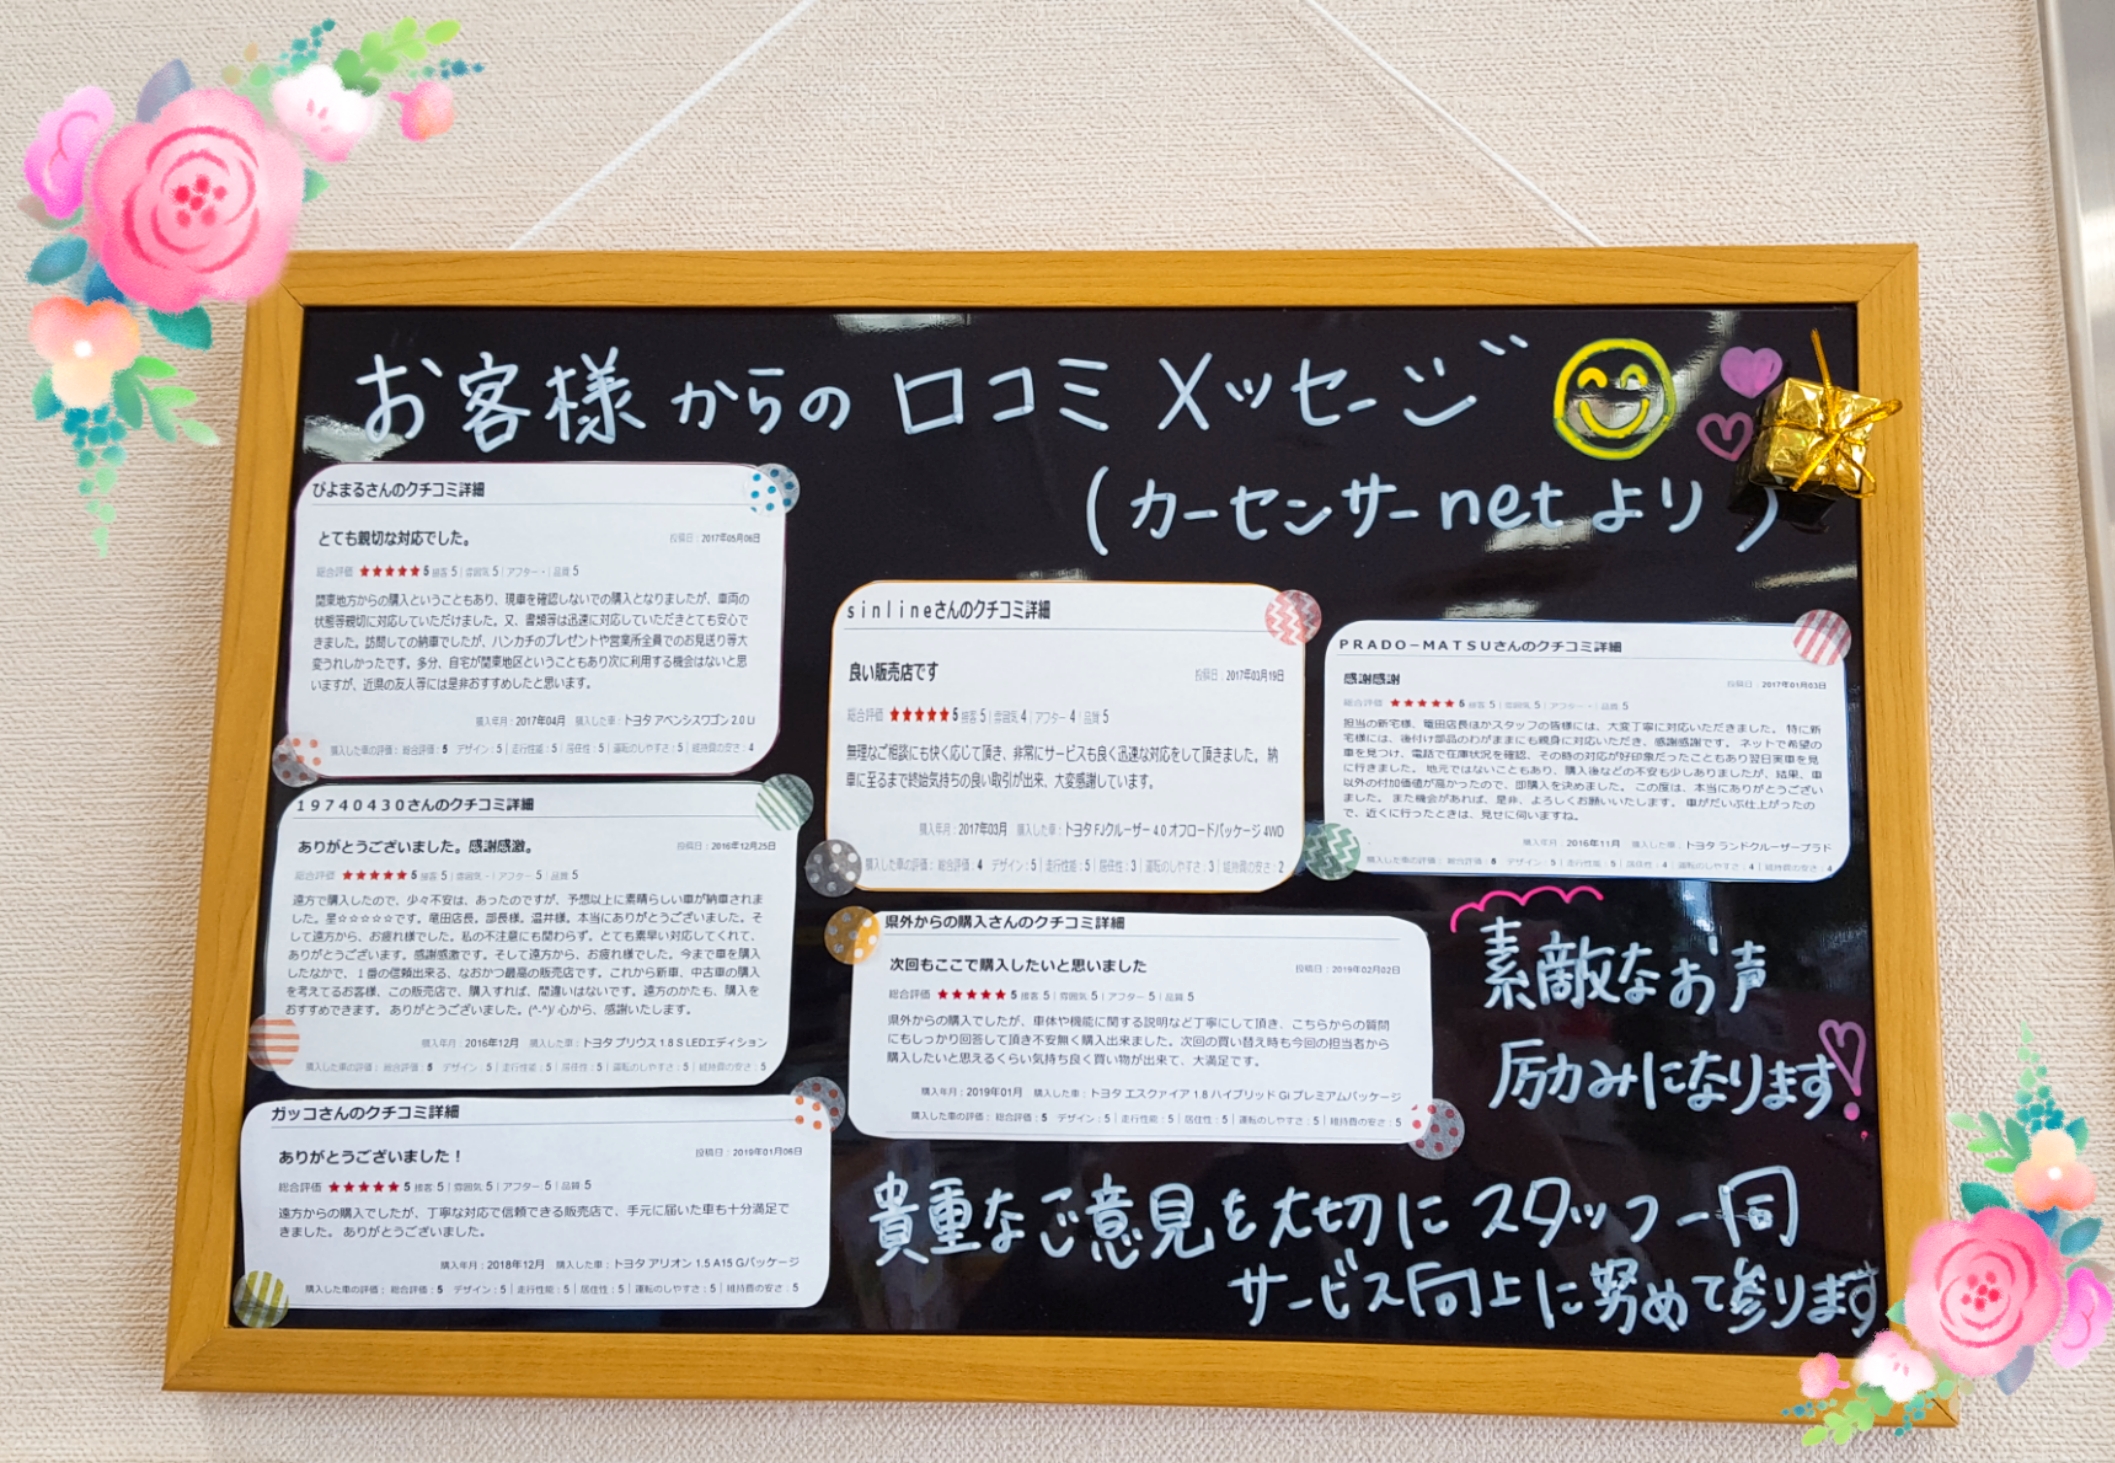 お客様からの口コミメッセージ
(カーセンサーnetより)
ぴよまるさんのクチコミ詳細
とても親切な対応でした。
投稿日：2017年05月06日
総合評価 ★★★★★ 5 接客 5｜雰囲気 5｜アフター -｜品質 5
関東地方からの購入ということもあり、現車を確認しないでの購入となりましたが、車両の
状態等親切に対応していただけました。又、書類等は迅速に対応していただきとても安心で
きました。訪問しての納車でしたが、ハンカチのプレゼントや営業所全員でのお見送り等大
変うれしかったです。多分、自宅が関東地区ということもあり次に利用する機会はないと思
いますが、近県の友人等には是非おすすめしたと思います。
購入年月：2017年04月 購入した車：トヨタ アベンシスワゴン 2.0 Li
購入した車の評価： 総合評価：5 デザイン：5｜走行性能：5｜居住性：5｜運転のしやすさ：5｜維持費の安さ：4
19740430さんのクチコミ詳細
ありがとうございました。感謝感激。
投稿日：2016年12月25日
総合評価 ★★★★★ 5 接客 5｜雰囲気 -｜アフター 5｜品質 5
遠方で購入したので、少々不安は、あったのですが、予想以上に素晴らしい車が納車されま
した。星☆☆☆☆☆です。竜田店長。部長様。温井様。本当にありがとうございました。そ
して遠方から、お疲れ様でした。私の不注意にも関わらず。とても素早い対応してくれて、
ありがとうございます。感謝感激です。そして遠方から、お疲れ様でした。今まで車を購入
したなかで、１番の信頼出来る、なおかつ最高の販売店です。これから新車、中古車の購入
を考えてるお客様、この販売店で、購入すれば、間違いはないです。遠方のかたも、購入を
おすすめできます。 ありがとうございました。(^-^)/ 心から、感謝いたします。
購入年月：2016年12月 購入した車：トヨタ プリウス 1.8 S LEDエディション
購入した車の評価： 総合評価：5 デザイン：5｜走行性能：5｜居住性：5｜運転のしやすさ：5｜維持費の安さ：5
ガッコさんのクチコミ詳細
ありがとうございました！
投稿日：2019年01月06日
総合評価 ★★★★★ 5 接客 5｜雰囲気 5｜アフター 5｜品質 5
遠方からの購入でしたが、丁寧な対応で信頼できる販売店で、手元に届いた車も十分満足で
きました。 ありがとうございました。
購入年月：2018年12月 購入した車：トヨタ アリオン 1.5 A15 Gパッケージ
購入した車の評価： 総合評価：5 デザイン：5｜走行性能：5｜居住性：5｜運転のしやすさ：5｜維持費の安さ：5
sinlineさんのクチコミ詳細
良い販売店です
投稿日：2017年03月19日
総合評価 ★★★★★ 5 接客 5｜雰囲気 4｜アフター 4｜品質 5
無理なご相談にも快く応じて頂き、非常にサービスも良く迅速な対応をして頂きました。 納
車に至るまで終始気持ちの良い取引が出来、大変感謝しています。
購入年月：2017年03月 購入した車：トヨタ FJクルーザー 4.0 オフロードパッケージ 4WD
購入した車の評価： 総合評価：4 デザイン：5｜走行性能：5｜居住性：3｜運転のしやすさ：3｜維持費の安さ：2
県外からの購入さんのクチコミ詳細
次回もここで購入したいと思いました
投稿日：2019年02月02日
総合評価 ★★★★★ 5 接客 5｜雰囲気 5｜アフター 5｜品質 5
県外からの購入でしたが、車体や機能に関する説明など丁寧にして頂き、こちらからの質問
にもしっかり回答して頂き不安無く購入出来ました。次回の買い替え時も今回の担当者から
購入したいと思えるくらい気持ち良く買い物が出来て、大満足です。
購入年月：2019年01月 購入した車：トヨタ エスクァイア 1.8 ハイブリッド Gi プレミアムパッケージ
購入した車の評価： 総合評価：5 デザイン：5｜走行性能：5｜居住性：5｜運転のしやすさ：5｜維持費の安さ：5
PRADO－MATSUさんのクチコミ詳細
感謝感謝
投稿日：2017年01月03日
総合評価 ★★★★★ 5 接客 5｜雰囲気 5｜アフター -｜品質 5
担当の新宅様、竜田店長ほかスタッフの皆様には、大変丁寧に対応いただきました。 特に新
宅様には、後付け部品のわがままにも親身に対応いただき、感謝感謝です。 ネットで希望の
車を見つけ、電話で在庫状況を確認、その時の対応が好印象だったこともあり翌日実車を見
に行きました。 地元ではないこともあり、購入後などの不安も少しありましたが、結果、車
以外の付加価値が高かったので、即購入を決めました。 この度は、本当にありがとうござい
ました。 また機会があれば、是非、よろしくお願いいたします。 車がだいぶ仕上がったの
で、近くに行ったときは、見せに伺いますね。
購入年月：2016年11月 購入した車：トヨタ ランドクルーザープラド
購入した車の評価： 総合評価：5 デザイン：5｜走行性能：5｜居住性：4｜運転のしやすさ：4｜維持費の安さ：4
素敵なお声
励みになります!
貴重なご意見を大切にスタッフ一同
サービス向上に努めて参ります